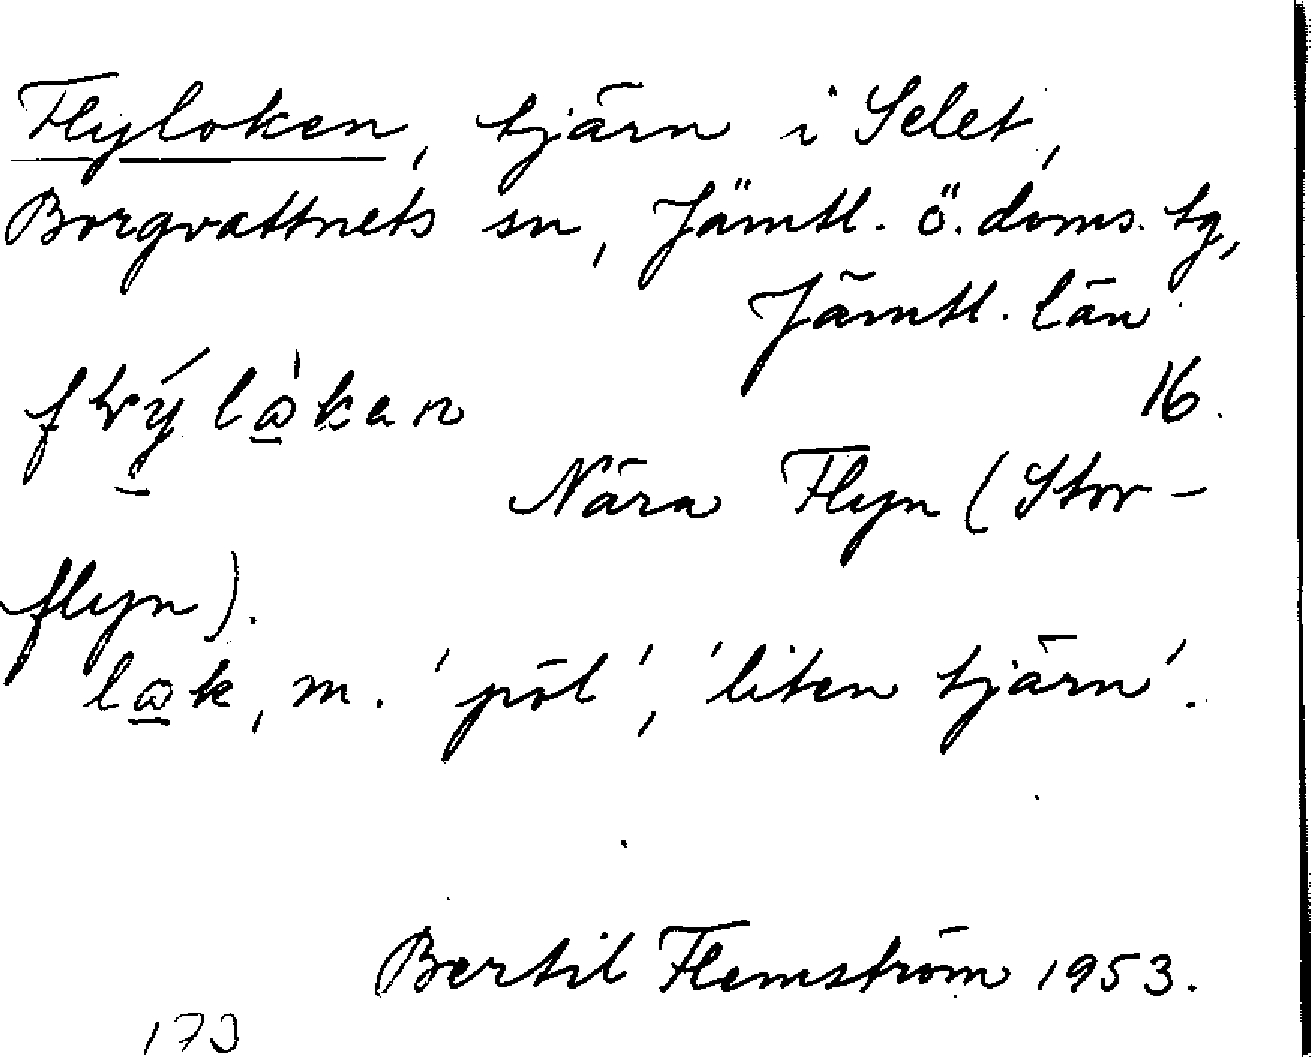 Flyloken, tjärn i Selet,
Borgvattnets sn, Jämtl. ö. doms. tg,
Jämtl. län
16.
Nära Flyn (Stor-
flyn).
m. 'pöl', 'liten tjärn'.
Bertil Flemström 1953.
173